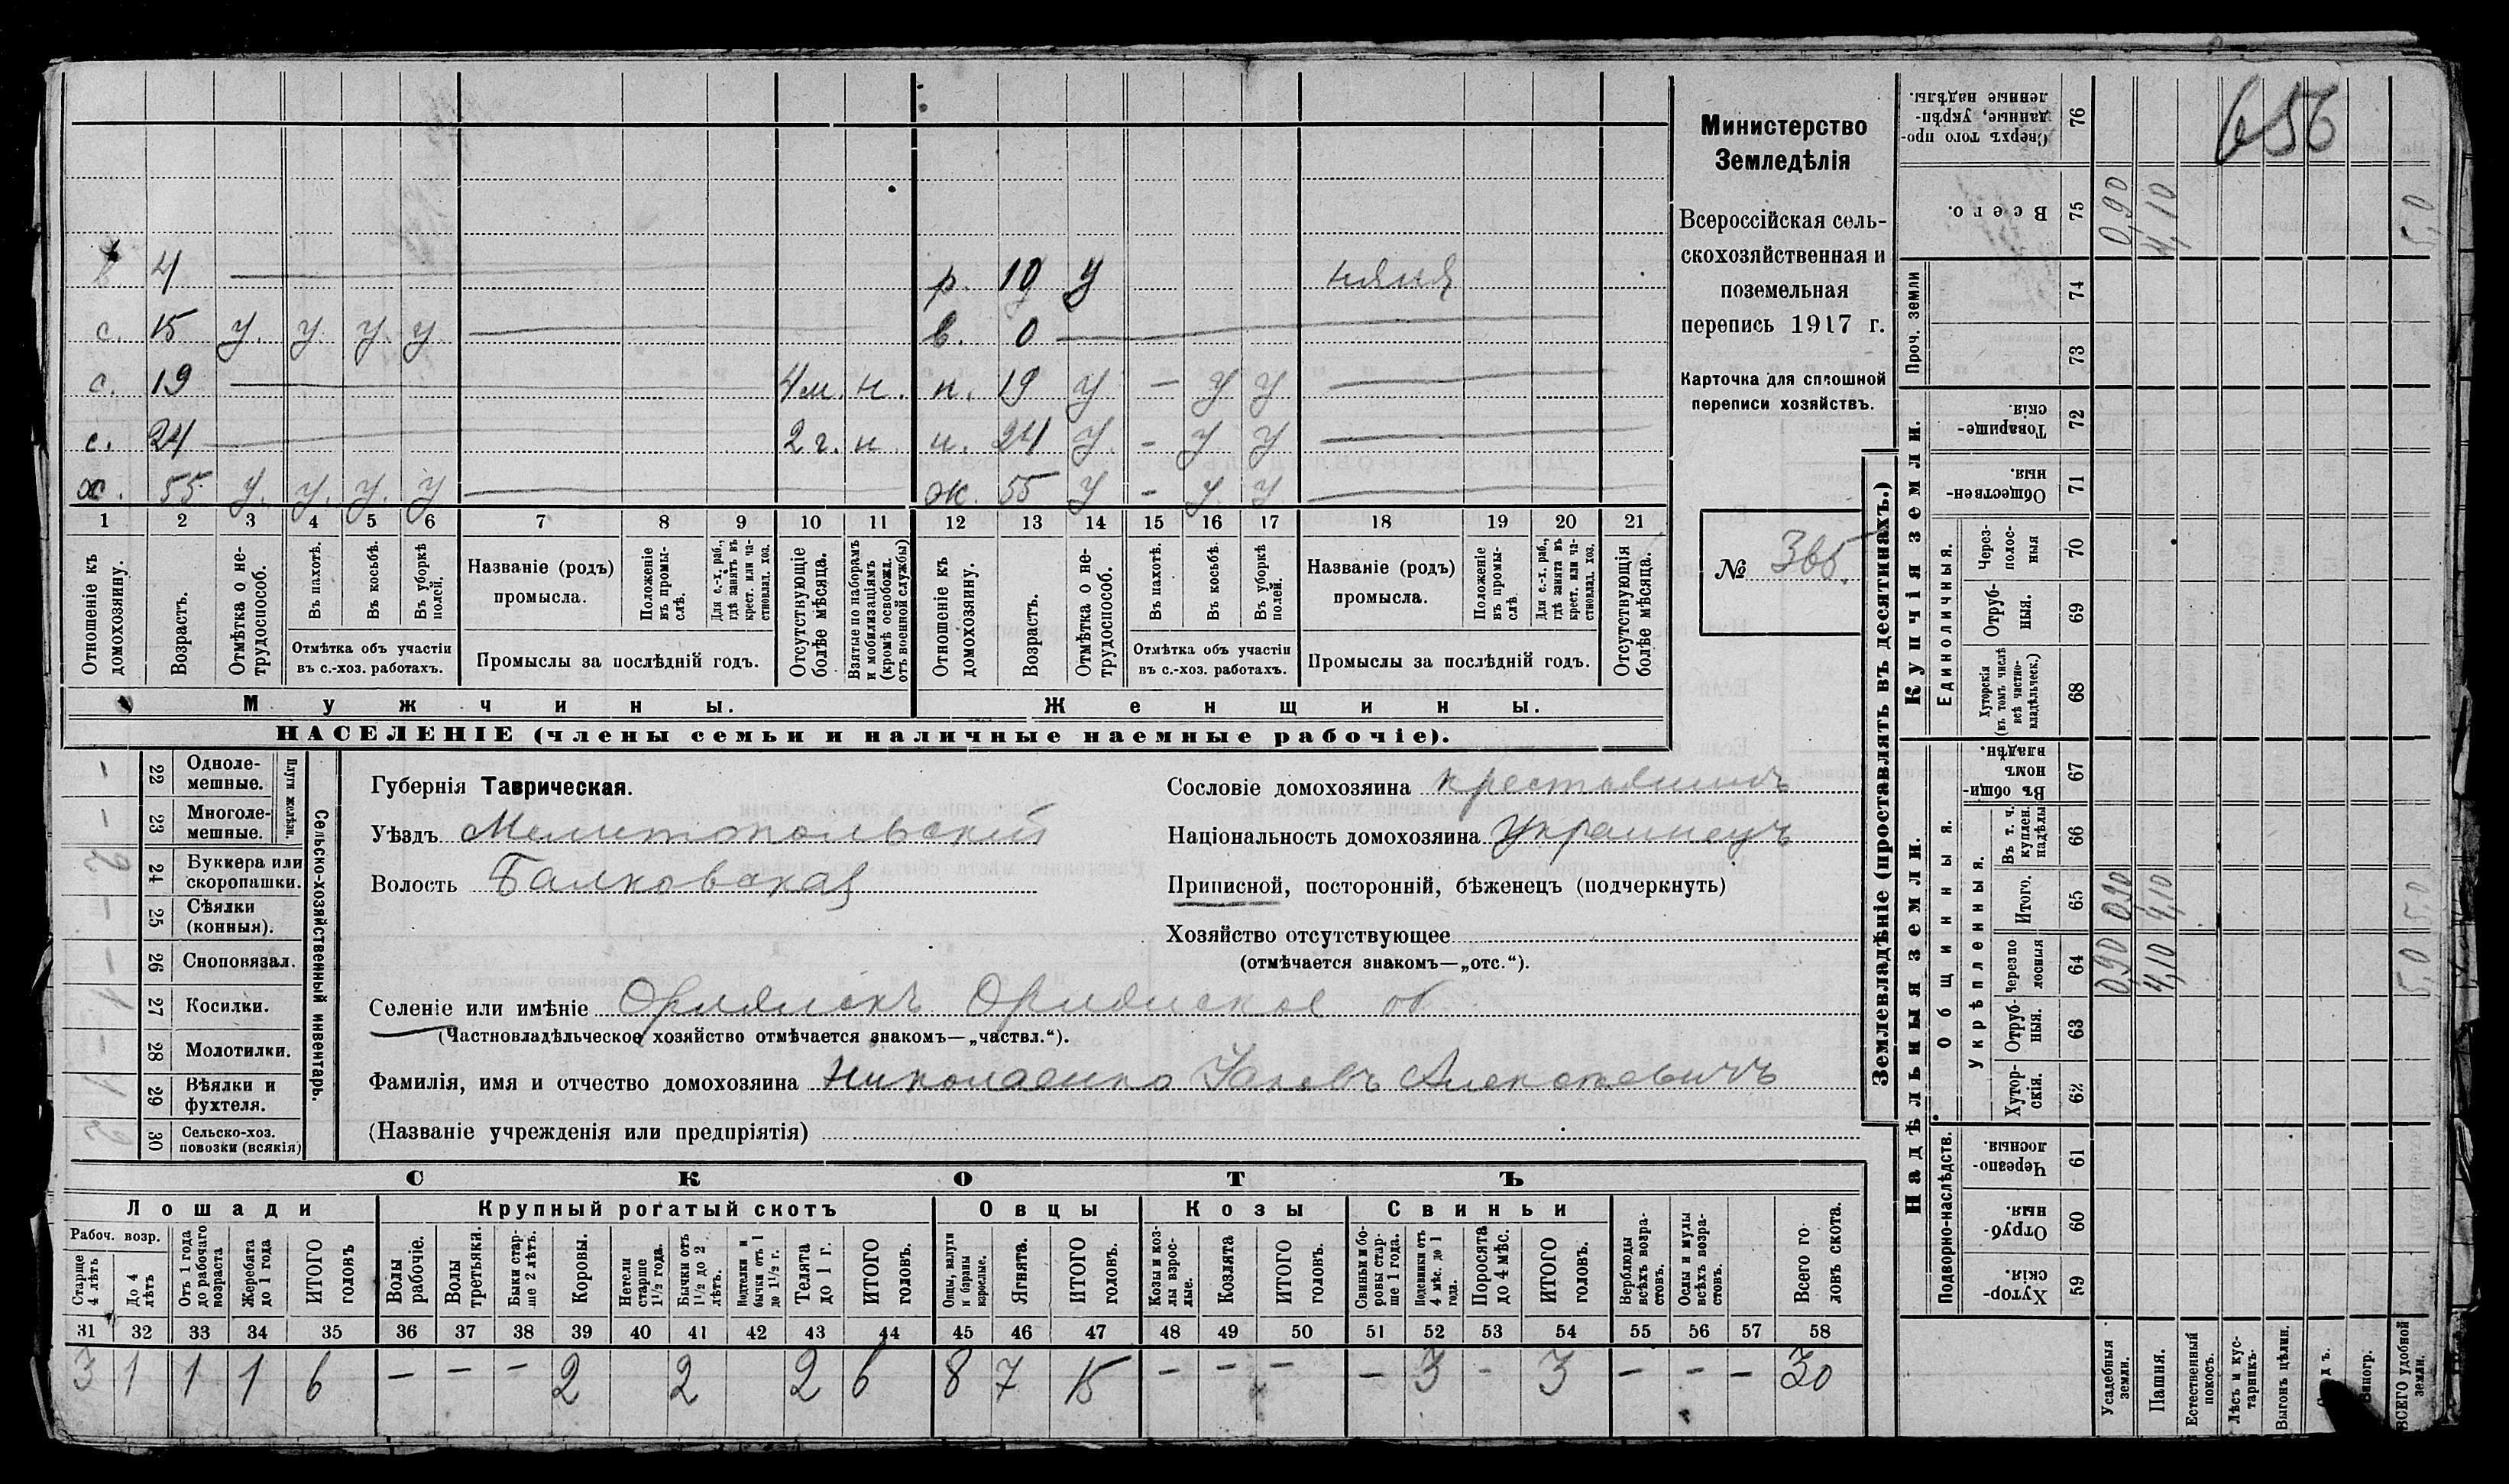 656
Министерство
Земледѣлія
Всероссійская сель-
скохозяйственная и
поземельная
перепись 1917 г.
Карточка для сплошной
переписи хозяйствъ.
№ 365.
4 р. 10 у няня
с. 15 у. у у. у в. 0
с. 19 4 м. н. н. 19 у – у у
с. 24 2 г. н н. 24 у. – у. у
х. 55 у. у. у. у ж. 55 у – у. у
1 2 3 4 5 6 7 8 9 10 11 12 13 14 15 16 17 18 19 20 21
Отношеніе къ домохозяину.
Возрастъ.
Отмѣтка о не-трудоспособ.
Въ пахотѣ.
Въ косьбѣ.
Въ уборкѣ полей.
Отмѣтка объ участіи
въ с.-хоз. работахъ.
Названіе (родъ)
промысла.
Положеніе въ промы-слѣ.
Для с.-х. раб., гдѣ занятъ въ крест. или ча-стновлад. хоз.
Промыслы за послѣдній годъ.
Отсутствующіе болѣе мѣсяца.
Взятые по наборамъ и мобилизаціямъ (кромѣ освобожд. отъ военной службы)
Отношеніе къ домохозяину.
Возрастъ.
Отмѣтка о не-трудоспособ.
Въ пахотѣ.
Въ косьбѣ.
Въ уборкѣ полей.
Отмѣтка объ участіи
въ с.-хоз. работахъ.
Названіе (родъ)
промысла.
Положеніе въ промы-слѣ
Для с.-х. раб., гдѣ занята въ крест. или ча-стновлад. хоз.
Промыслы за послѣдній годъ.
Отсутствующія болѣе мѣсяца.
Мужчины. Женщины.
НАСЕЛЕНІЕ (члены семьи и наличные наемные рабочіе).
Сельско-хозяйственный инвентарь.
Плуги желѣзн.
– 22 Однолe-мешные.
– 23 Многоле-мешные.
24 Буккера или скоропашки.
– 25 Сѣялки (конныя).
– 26 Сноповязал.
1 27 Косилки.
– 28 Молотилки.
1 29 Вѣялки и фухтеля.
30 Сельско-хоз. повозки (всякія)
Губернія Таврическая.
Уѣздъ Мелитопольскій
Волость Балковская
Сословіе домохозяина крестьянинъ
Національность домохозяина Украинецъ
Приписной, посторонній, бѣженец (подчеркнуть)
Хозяйство отсутствующее
(отмѣчается знакомъ—„отс.“).
Селеніе или имѣніе Орлянскъ Орлянское об
(Частновладѣльческое хозяйство отмѣчается знакомъ—„частвл.“).
Фамилія, имя и отчество домохозяина Николаенко Яковъ Алексѣевичъ
(Названіе учрежденія или предпріятія)
СКОТЪ
Лошади Крупный рогатый скотъ Овцы Козы Свиньи
Рабоч. возр.
Старше 4 лѣтъ
До 4 лѣтъ
Отъ 1 года до рабочаго возраста
Жеребята до 1 года
ИТОГО головъ
Волы рабочіе.
Волы третьяки.
Быки стар-ше 2 лѣтъ.
Коровы.
Нетели старше 1½ года.
Бычки отъ 1½ до 2 лѣтъ.
Подтелки и бычки отъ 1 до 1½ г.
Телята до 1 г.
ИТОГО головъ.
Овцы, валухи и бараны взрослые.
Ягнята.
ИТОГО головъ.
Козы и коз-лы взрос-лые.
Козлята
ИТОГО головъ.
Свиньи и бо-ровы стар-ше 1 года.
Подсвинки отъ 4 мѣс. до 1 года.
Поросята до 4 мѣс.
ИТОГО головъ.
Верблюды всѣхъ возра-стовъ.
Ослы и мулы всѣхъ возра-стовъ.
Всего го-ловъ скота.
31 32 33 34 35 36 37 38 39 40 41 42 43 44 45 46 47 48 49 50 51 52 53 54 55 56 57 58
3 1 1 1 6 – – – 2 2 2 6 8 7 15 – – – – 3 – 3 – – – 30
Землевладѣніе (проставлять въ десятинахъ.)
Купчія земли.
Надѣльныя земли.
Сверхъ того про-данные, укрѣп-ленные надѣлы. 76
Всего. 75 0,90 4,10 5,0
Проч. земли 74
73
Товарище-скія. 72
Обществен-ныя. 71
Единоличныя.
Через-полос-ныя 70
Отруб-ныя. 69
Хуторскія (въ томъ числѣ всѣ частно-владѣльческ.) 68
Общинныя.
Въ общи-номъ владѣн. 67
Укрѣпленныя.
Въ т. ч. куплен. надѣлы 66
Итого. 65 0,90 4,10 5,0
Черезпо-лосныя 64 0,90 4,10 5,0
Отруб-ныя. 63
Хутор-скія. 62
Подворно-наслѣдств.
Черезпо-лосныя 61
Отруб-ныя. 60
Хутор-скія. 59
Усадебныя земли.
Пашня.
Естественный покосъ.
Лѣсъ и кус-тарникъ.
Выгонъ цѣлин.
Виногр.
ВСЕГО удобной земли.